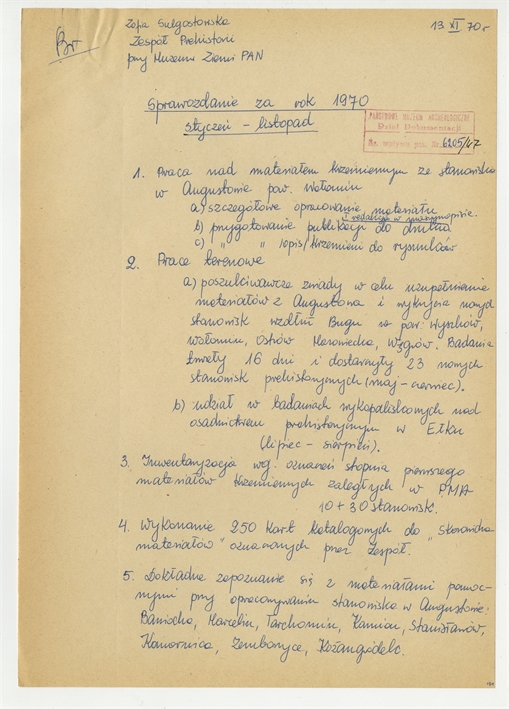 Zofia Sulgostowska
13 XI 70 r
Br
Zespół Prehistorii
przy Muzeum Ziemi PAN
Sprawozdanie za rok 1970
styczeń - listopad
PAŃSTWOWE MUZEUM ARCHEOLOGICZNE
Dział Dokumentacji
Nr. wpływu poz. Nr. 6205/47
1. Praca nad materiałem krzemiennym ze stanowiska
w Augustowie pow. Wołomin
a) szczegółowe opracowanie materiału
i redakcja w maszynopisie.
b) przygotowanie publikacji do druku
c) " " /opis/ krzemieni do rysunków
2. Prace terenowe
a) poszukiwawcze zwiady w celu uzupełnienia
materiałów z Augustowa i wykrycia nowych
stanowisk wzdłuż Bugu w pow. Wyszków,
Wołomin, Ostrów Mazowiecka, Węgrów. Badania
trwały 16 dni i dostarczyły 23 nowych
stanowisk prehistorycznych (maj - czerwiec).
b) udział w badaniach wykopaliskowych nad
osadnictwem prehistorycznym w Ełku
(lipiec - sierpień).
3. Inwentaryzacja wg. oznaczeń stopnia pierwszego
materiałów krzemiennych zaległych w PMA
10 + 30 stanowisk.
4. Wykonanie 250 kart katalogowych do "Skorowidza
materiałów" oznaczonych przez Zespół.
5. Dokładne zapoznanie się z materiałami pomoc-
nymi przy opracowywaniu stanowiska w Augustowie:
Baniocha, Marcelin, Tarchomin, Kamion, Stanisławów,
Komornica, Zemborzyce, Kożangródek.